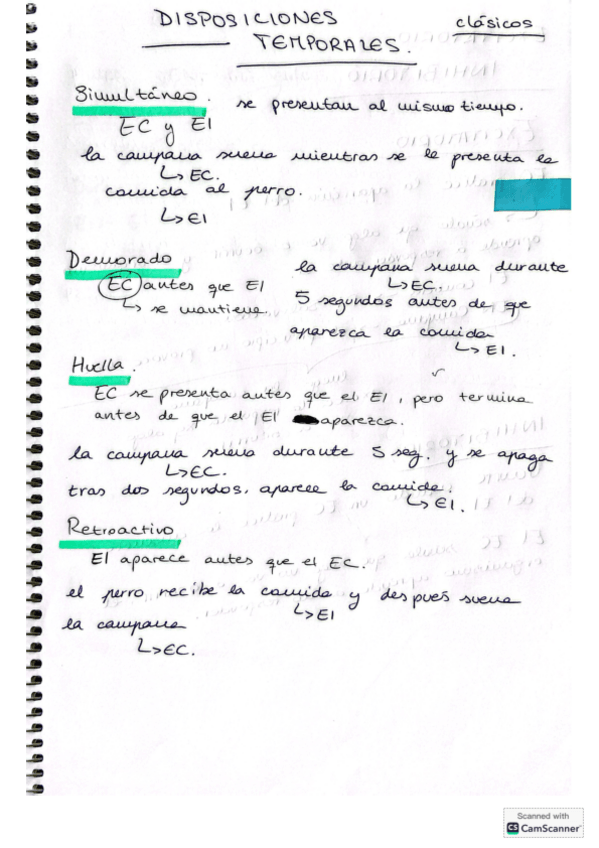 DISPOSICIONES clásicos
TEMPORALES.
Simultáneo. se presentan al mismo tiempo.
EC y EI
la campana suena mientras se le presenta la
↳ EC.
comida al perro.
↳ EI
Demorado
EC antes que EI
↳ se mantiene
la campana suena durante
↳ EC.
5 segundos antes de que
aparezca la comida
↳ EI.
Huella.
EC se presenta antes que el EI, pero termina
antes de que el EI aparezca.
la campana suena durante 5 seg. y se apaga
↳ EC.
tras dos segundos, aparece la comida.
↳ EI.
Retroactivo
EI aparece antes que el EC.
el perro recibe la comida y después suena
↳ EI
la campana
↳ EC.
Scanned with
CS CamScanner